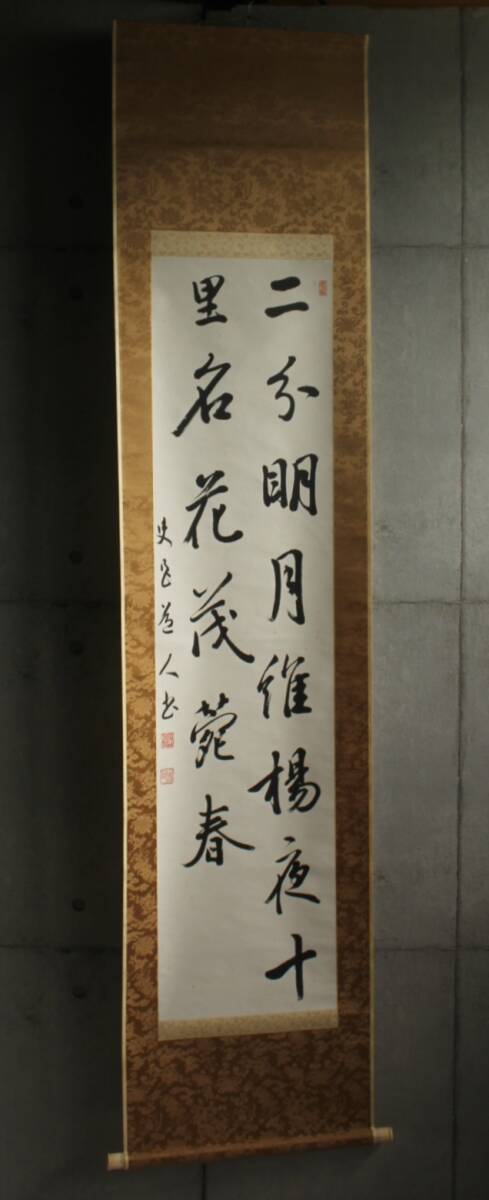 二分明月維楊夜十
里名花茂苑春
道人書